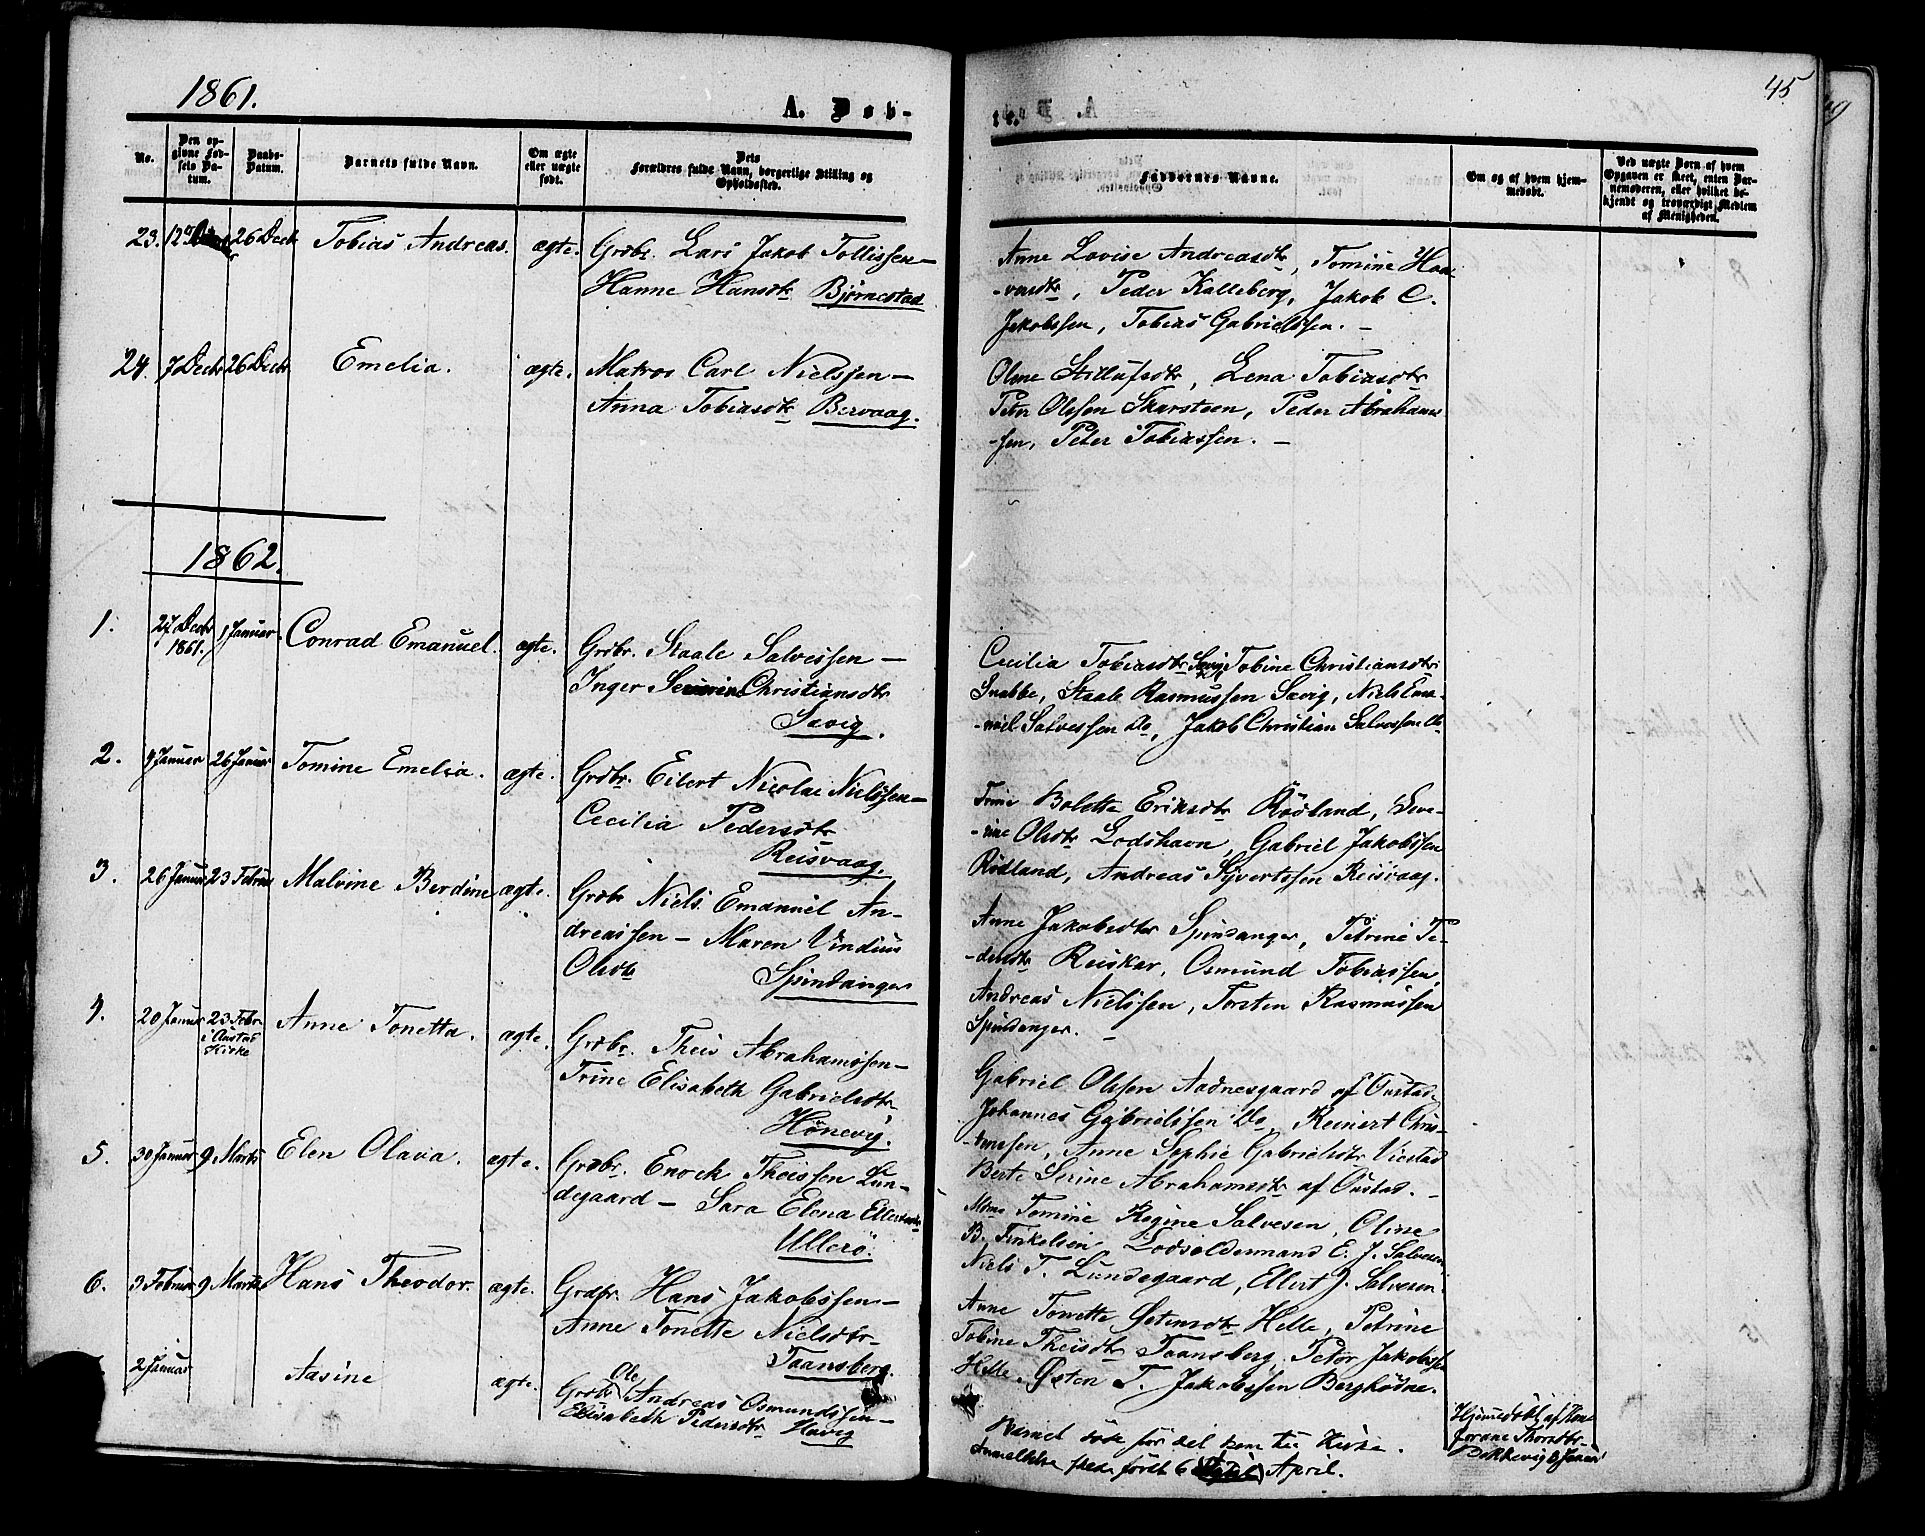 1861.
A. Døb-
No.
Den op-
givne Fød-
sels Da-
tum.
Daabs-
Datum.
Barnets fulde Navn.
Om ægte
eller uægte
født.
Dets
Forældres fulde Navn, borgerlige Stilling og
Opholdssted.
23. 26 Decb Tobias Andreas. ægte. Grdbr. Lars Jakob Tollissen—
Hanne Hansdtr Bjørnestad
24. 7 Decbr 26 Decbr Emelia. ægte. Matros Carl Nielssen—
Anna Tobiasdtr Bervaag.
1862.
1. 27 Decbr 1861. 1 Januar Conrad Emanuel. ægte. Grdbr. Staale Salvessen—
Inger Christiansdtr
Savig.
2. 9 Januar 26 Januar Tomine Emelia. ægte. Grdbr. Eilert Nicolai Nielssen—
Cecilia Pedersdtr
Reisvaag.
3. 26 Januar 23 Februar Malvine Berdine ægte. Grdbr Niels Emanuel An-
dreassen — Maren
Olsdtr Spindsanger
4. 20 Januar 23 Febr.
i Oustad
Kirke
Anne Tonetta. ægte. Grdbr. Theis Abrahamssen—
Trine Elisabeth Gabrielsdtr
Hönevig.
5. 30 Januar 9 Marts Elen Olava. ægte. Grdbr. Enoch Theissen Lun-
degaard — Sara Elena Ellertsdtr
Ullerö.
6. 3 Februar 9 Marts Hans Theodor. ægte. Grdbr. Hans Jakobssen—
Anne Tonette Nielsdtr
Taansberg.
2 Januar Aasine ægte. Grdbr Ole Andreas Osmundssen—
Elisabeth Pedersdtr Havig
45
te.
Faddernes Navne.
Om og af hvem hjem-
medøbt.
Ved uægte Børn af hvem
Opgaven er skeet, enten Bar-
nemoderen, eller hvilket be-
kjendt og troværdigt Medlem
af Menigheden.
Anne Lovise Andreasdtr, Tomine Haa-
-versdtr, Peder Kalleberg, Jakob C.
Jakobssen, Tobias Gabrielssen. —
Oline Lena Tobiasdtr
Peter Olssen Skarsteen, Peder Abrahams-
-sen, Peter Tobiassen. —
Cecilia Tobiasdtr Savig, Tobine Christiansdtr
Snabbe, Staale Rasmussen Savig, Niels Ema-
-nuel Salvessen Do, Jakob Christian Salvessen Do
Trine Bolette Eriksdtr Rödland, Seve-
-rine Olsdtr Lodshavn, Gabriel Jakobssen
Rödland, Andreas Sijvertssen Reisvaag.
Anne Jakobsdtr Spindsanger, Petrine Pe-
-dersdtr Osmund Tobiassen,
Andreas Nielssen, Torsten Rasmussen
Spindsanger.
Gabriel Olssen Aadnesgaard af Oustad
Johannes Gabrielssen Do, Reinert Chris-
-tenssen, Anne Sophie Gabrielsdtr Viestad
Berte Serine Abrahamsdtr af Oustad. —
Mme Tomine Regine Salvesen, Oline
B. Finkelsen, Lodsoldermand E. J. Salvesen
Niels T. Lundegaard, Ellert J. Salvesen.
Anne Tonette Østensdtr Helle, Petrine
Tobine Theisdtr Taansberg, Peter Jakobssen
Helle, Østen T. Jakobssen Berghödne.
Barnet døde før det kom til Kirke.
Anmeldelse skede først 6 April.
Hjemmedøbt af
Thorsdtr